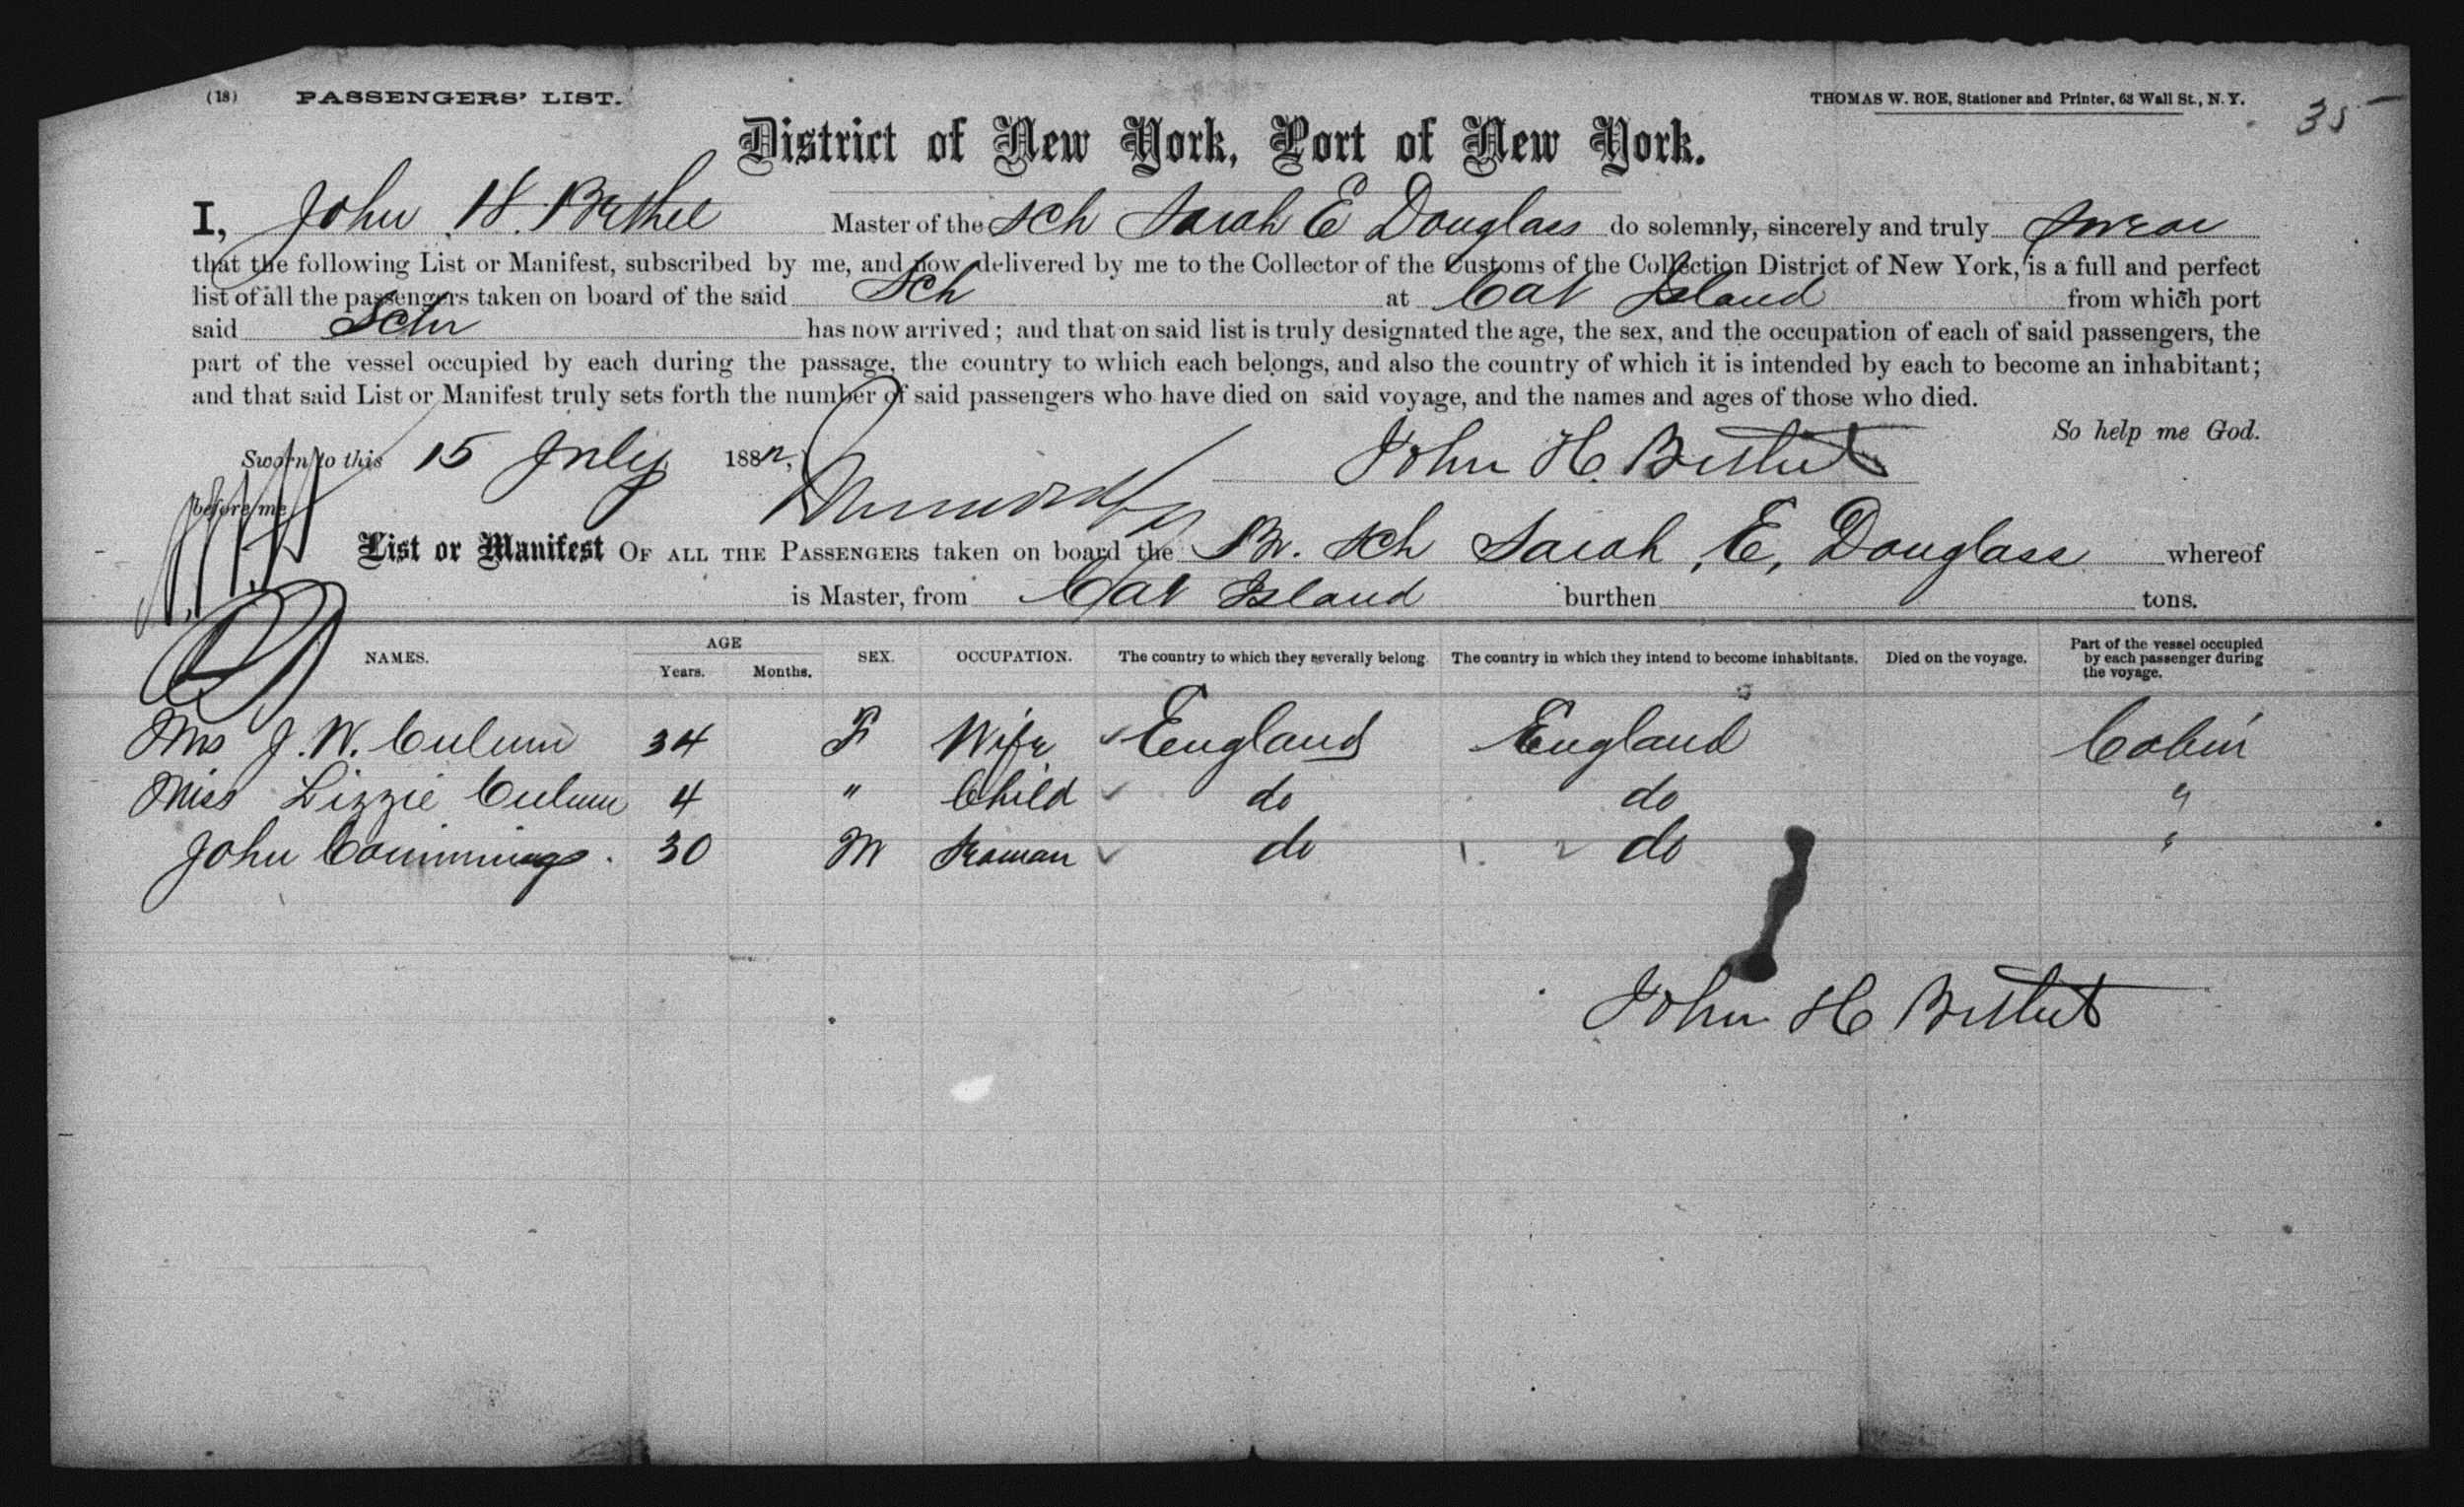 (18) PASSENGERS' LIST.
THOMAS W. ROE, Stationer and Printer, 63 Wall St., N. Y.
35
District of New York, Port of New York.
I, John H. Bethel Master of the Sch Sarah E Douglass do solemnly, sincerely and truly swear
that the following List or Manifest, subscribed by me, and now delivered by me to the Collector of the Customs of the Collection District of New York, is a full and perfect
list of all the passengers taken on board of the said Sch at Cat Island from which port
said Schr has now arrived; and that on said list is truly designated the age, the sex, and the occupation of each of said passengers, the
part of the vessel occupied by each during the passage, the country to which each belongs, and also the country of which it is intended by each to become an inhabitant;
and that said List or Manifest truly sets forth the number of said passengers who have died on said voyage, and the names and ages of those who died.
So help me God.
Sworn to this 15 July 188
John H. Bethel
before me
List or Manifest OF ALL THE PASSENGERS taken on board the Br. Sch Sarah, E, Douglass whereof
is Master, from Cat Island burthen tons.
NAMES. AGE Years. Months. SEX. OCCUPATION. The country to which they severally belong. The country in which they intend to become inhabitants. Died on the voyage. Part of the vessel occupied by each passenger during the voyage.
Mrs J. W. Culum 34 F Wife England England Cabin
Miss Lizzie Culum 4 " Child do do "
John Cummings. 30 M Seaman do do "
John H Bethel